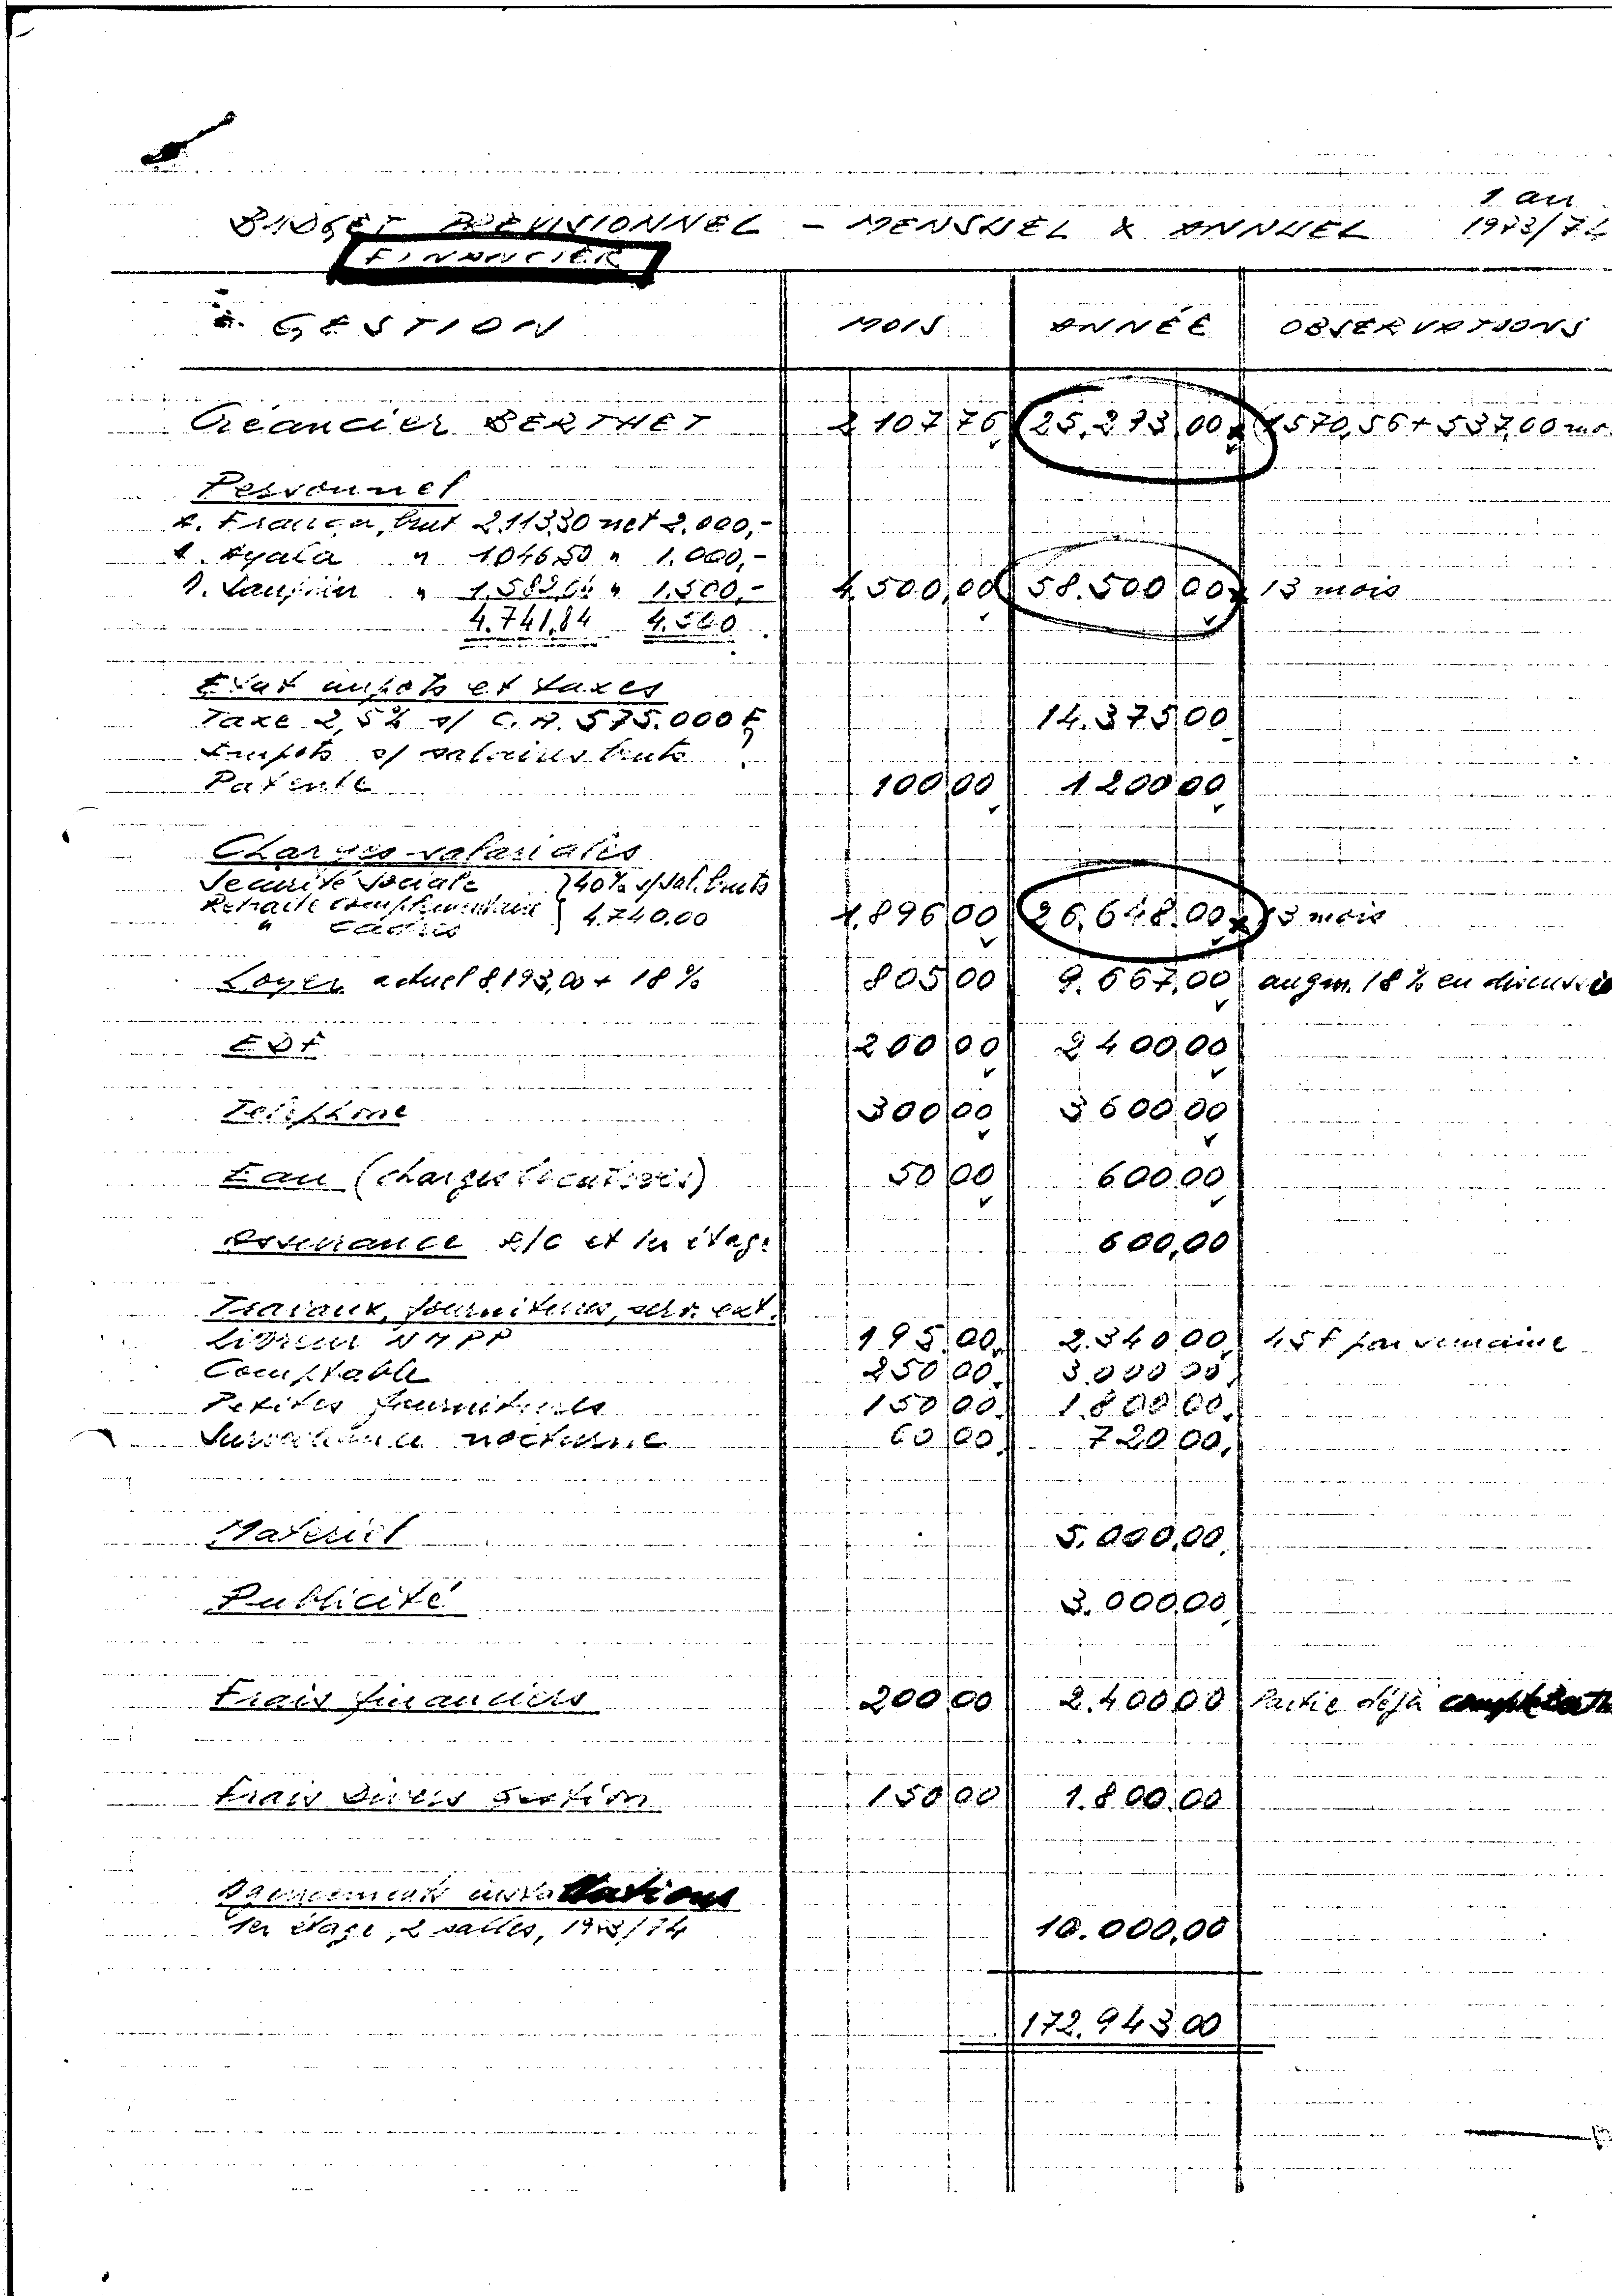 1 an
BUDGET PREVISIONNEL - MENSUEL & ANNUEL 1973/74
FINANCIER
GESTION MOIS ANNÉE OBSERVATIONS
Créancier BERTHET 2 107 76 25.293,00 1570,56 + 537,00
Personnel
brut 2.113,30 net 2.000,-
Ayala " 1046,50 " 1.000,-
" 1.582,04 " 1.500,- 4.500,00 58.500 00 13 mois
4.741,84 4.500
Etat impots et taxes
Taxe 2,5% s/ C.A. 575.000 F 14.375 00
Impots s/ salaires bruts ?
Patente 100 00 1 200 00
Charges salariales
Sécurité Sociale } 40% s/sal. bruts
Retraite complémentaire } 4.740.00 1.896 00 26.648.00 13 mois
" cadres
Loyer actuel 8.193,00 + 18 % 805 00 9.667,00 augm. 18 % en
EDF 200 00 2 400,00
Téléphone 300 00 3 600 00
Eau (charges locatives) 50 00 600 00
Assurance R/C et 1er étage 600,00
Travaux, fournitures, serv. ext.
NMPP 195.00 2.340 00 45 F par semaine
Comptable 250 00 3.000 00
Petites fournitures 150 00 1.800 00
Surveillance nocturne 60 00 720 00
Matériel 5.000,00
Publicité 3.000,00
Frais financiers 200 00 2.400 00 Partie déjà
Frais divers Gestion 150 00 1.800,00
Agencements installations
1er étage, 2 salles, 1973/74 10.000,00
172.943 00